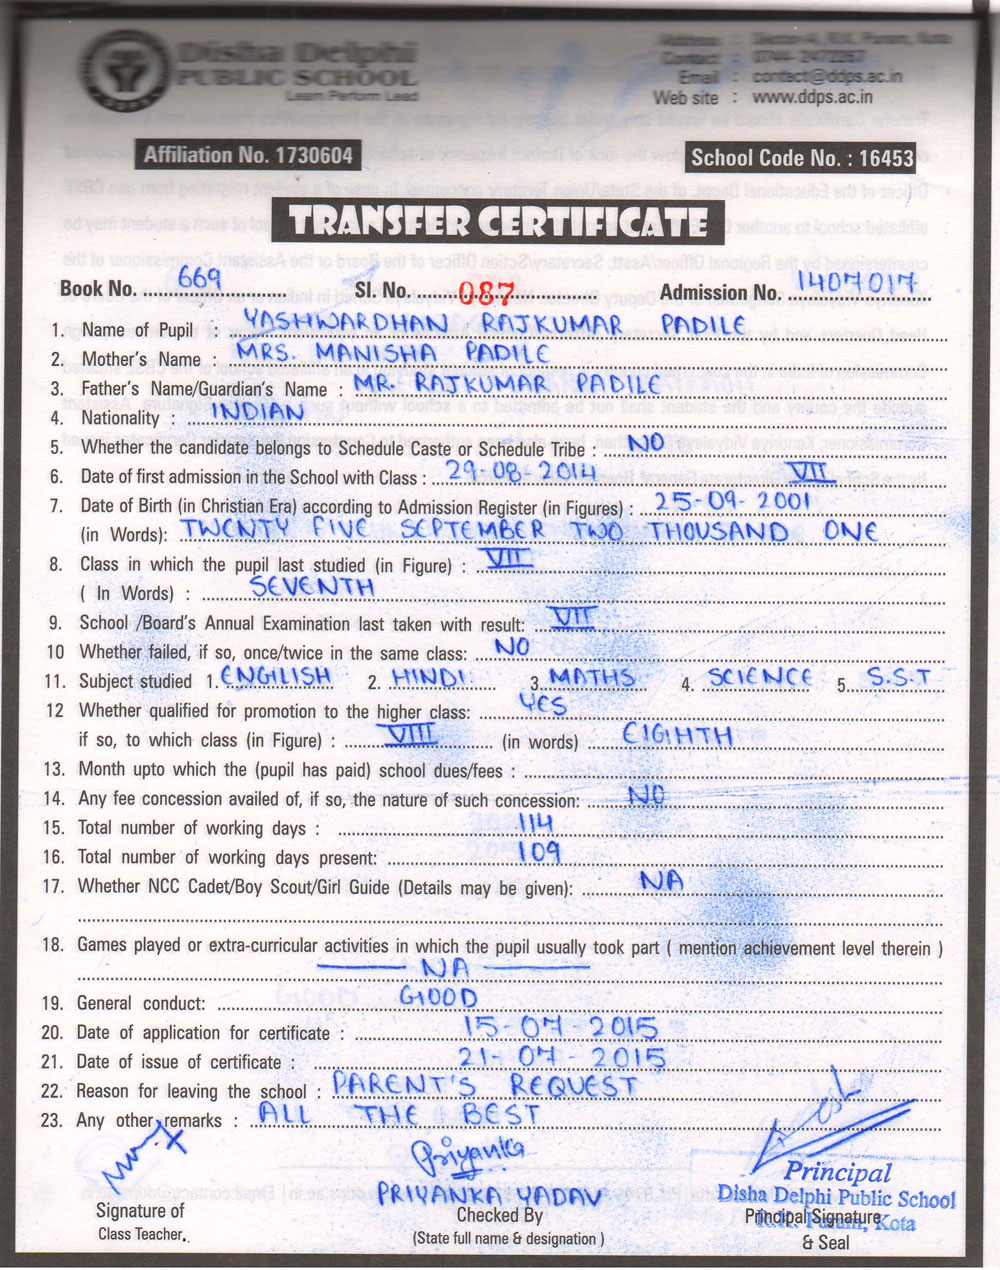 Disha Delphi
PUBLIC SCHOOL
Learn Perform Lead
DDPS
Address : Section-A, R.K. Puram, Kota
Contact : 0744- 2472267
Email : contact@ddps.ac.in
Web site : www.ddps.ac.in
Affiliation No. 1730604
School Code No. : 16453
TRANSFER CERTIFICATE
Book No. 669 Sl. No. 087 Admission No. 1407017
1. Name of Pupil : YASHWARDHAN RAJKUMAR PADILE
2. Mother's Name : MRS. MANISHA PADILE
3. Father's Name/Guardian's Name : MR. RAJKUMAR PADILE
4. Nationality : INDIAN
5. Whether the candidate belongs to Schedule Caste or Schedule Tribe : NO
6. Date of first admission in the School with Class : 29-08-2014 VII
7. Date of Birth (in Christian Era) according to Admission Register (in Figures) : 25-09-2001
(in Words): TWENTY FIVE SEPTEMBER TWO THOUSAND ONE
8. Class in which the pupil last studied (in Figure) : VII
( In Words) : SEVENTH
9. School /Board's Annual Examination last taken with result: VII
10 Whether failed, if so, once/twice in the same class: NO
11. Subject studied 1. ENGILISH 2. HINDI 3. MATHS 4. SCIENCE 5. S.S.T
12 Whether qualified for promotion to the higher class: YES
if so, to which class (in Figure) : VIII (in words) EIGHTH
13. Month upto which the (pupil has paid) school dues/fees :
14. Any fee concession availed of, if so, the nature of such concession: NO
15. Total number of working days : 114
16. Total number of working days present: 109
17. Whether NCC Cadet/Boy Scout/Girl Guide (Details may be given): NA
18. Games played or extra-curricular activities in which the pupil usually took part ( mention achievement level therein )
NA
19. General conduct: GOOD
20. Date of application for certificate : 15-07-2015
21. Date of issue of certificate : 21-07-2015
22. Reason for leaving the school : PARENT'S REQUEST
23. Any other remarks : ALL THE BEST
Priyanka
PRIYANKA YADAV
Principal
Disha Delphi Public School
R.K. Puram, Kota
Signature of
Class Teacher.
Checked By
(State full name & designation )
Principal Signature
& Seal